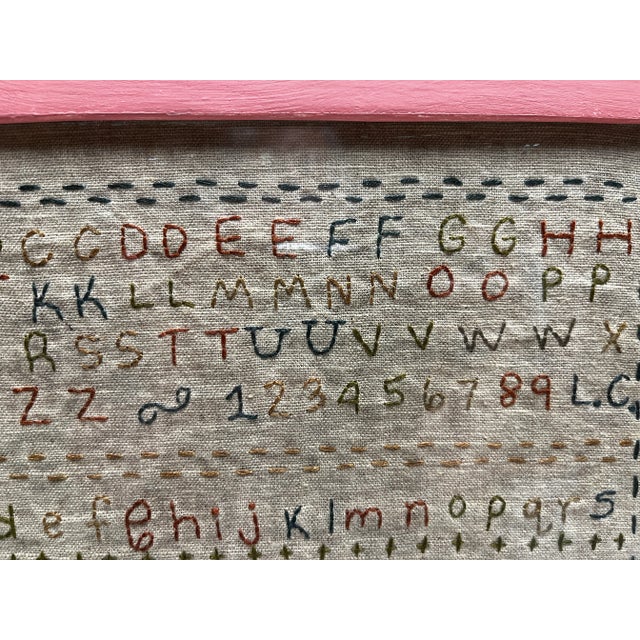 C C D D E E F F G G H H
K K L L M M N N O O P P
R S S T T U U V V W W X
Z Z 1 2 3 4 5 6 7 8 9 L.C.
d e f g h i j k l m n o p q r s